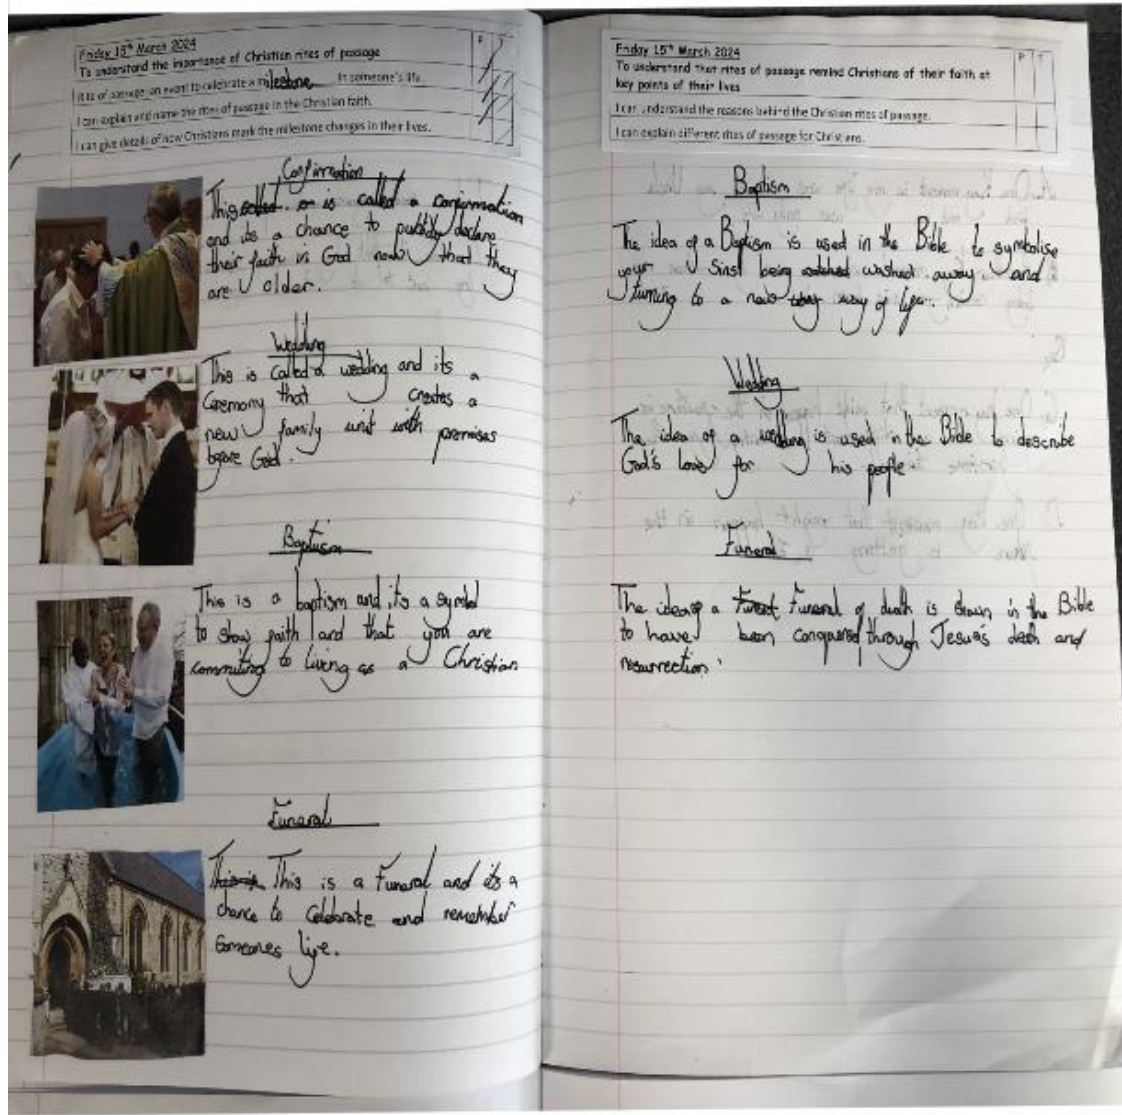 Friday 15th March 2024
To understand the importance of Christian rites of passage
P T
Rite of passage: an event to celebrate a milestone in someone's life.
I can explain and name the rites of passage in the Christian faith.
I can give details of how Christians mark the milestone changes in their lives.
Confirmation
This is called a confirmation
and its a chance to publicly declare
their faith in God now that they
are older.
Wedding
This is called a wedding and its a
Ceremony that creates a
new family unit with promises
before God.
Baptism
This is a baptism and its a symbol
to show faith and that you are
commiting to living as a Christian
Funeral
This is This is a Funeral and its a
chance to Celebrate and remember
Someones life.
Friday 15th March 2024
To understand that rites of passage remind Christians of their faith at
key points of their lives
P T
I can understand the reasons behind the Christian rites of passage.
I can explain different rites of passage for Christians.
Baptism
The idea of a Baptism is used in the Bible to symbolise
your Sinst being washed away and
turning to a new way of life.
Wedding
The idea of a wedding is used in the Bible to describe
God's love for his people.
Funeral
The idea of a Funeral of death is shown in the Bible
to have been conquered through Jesus's death and
resurrection.